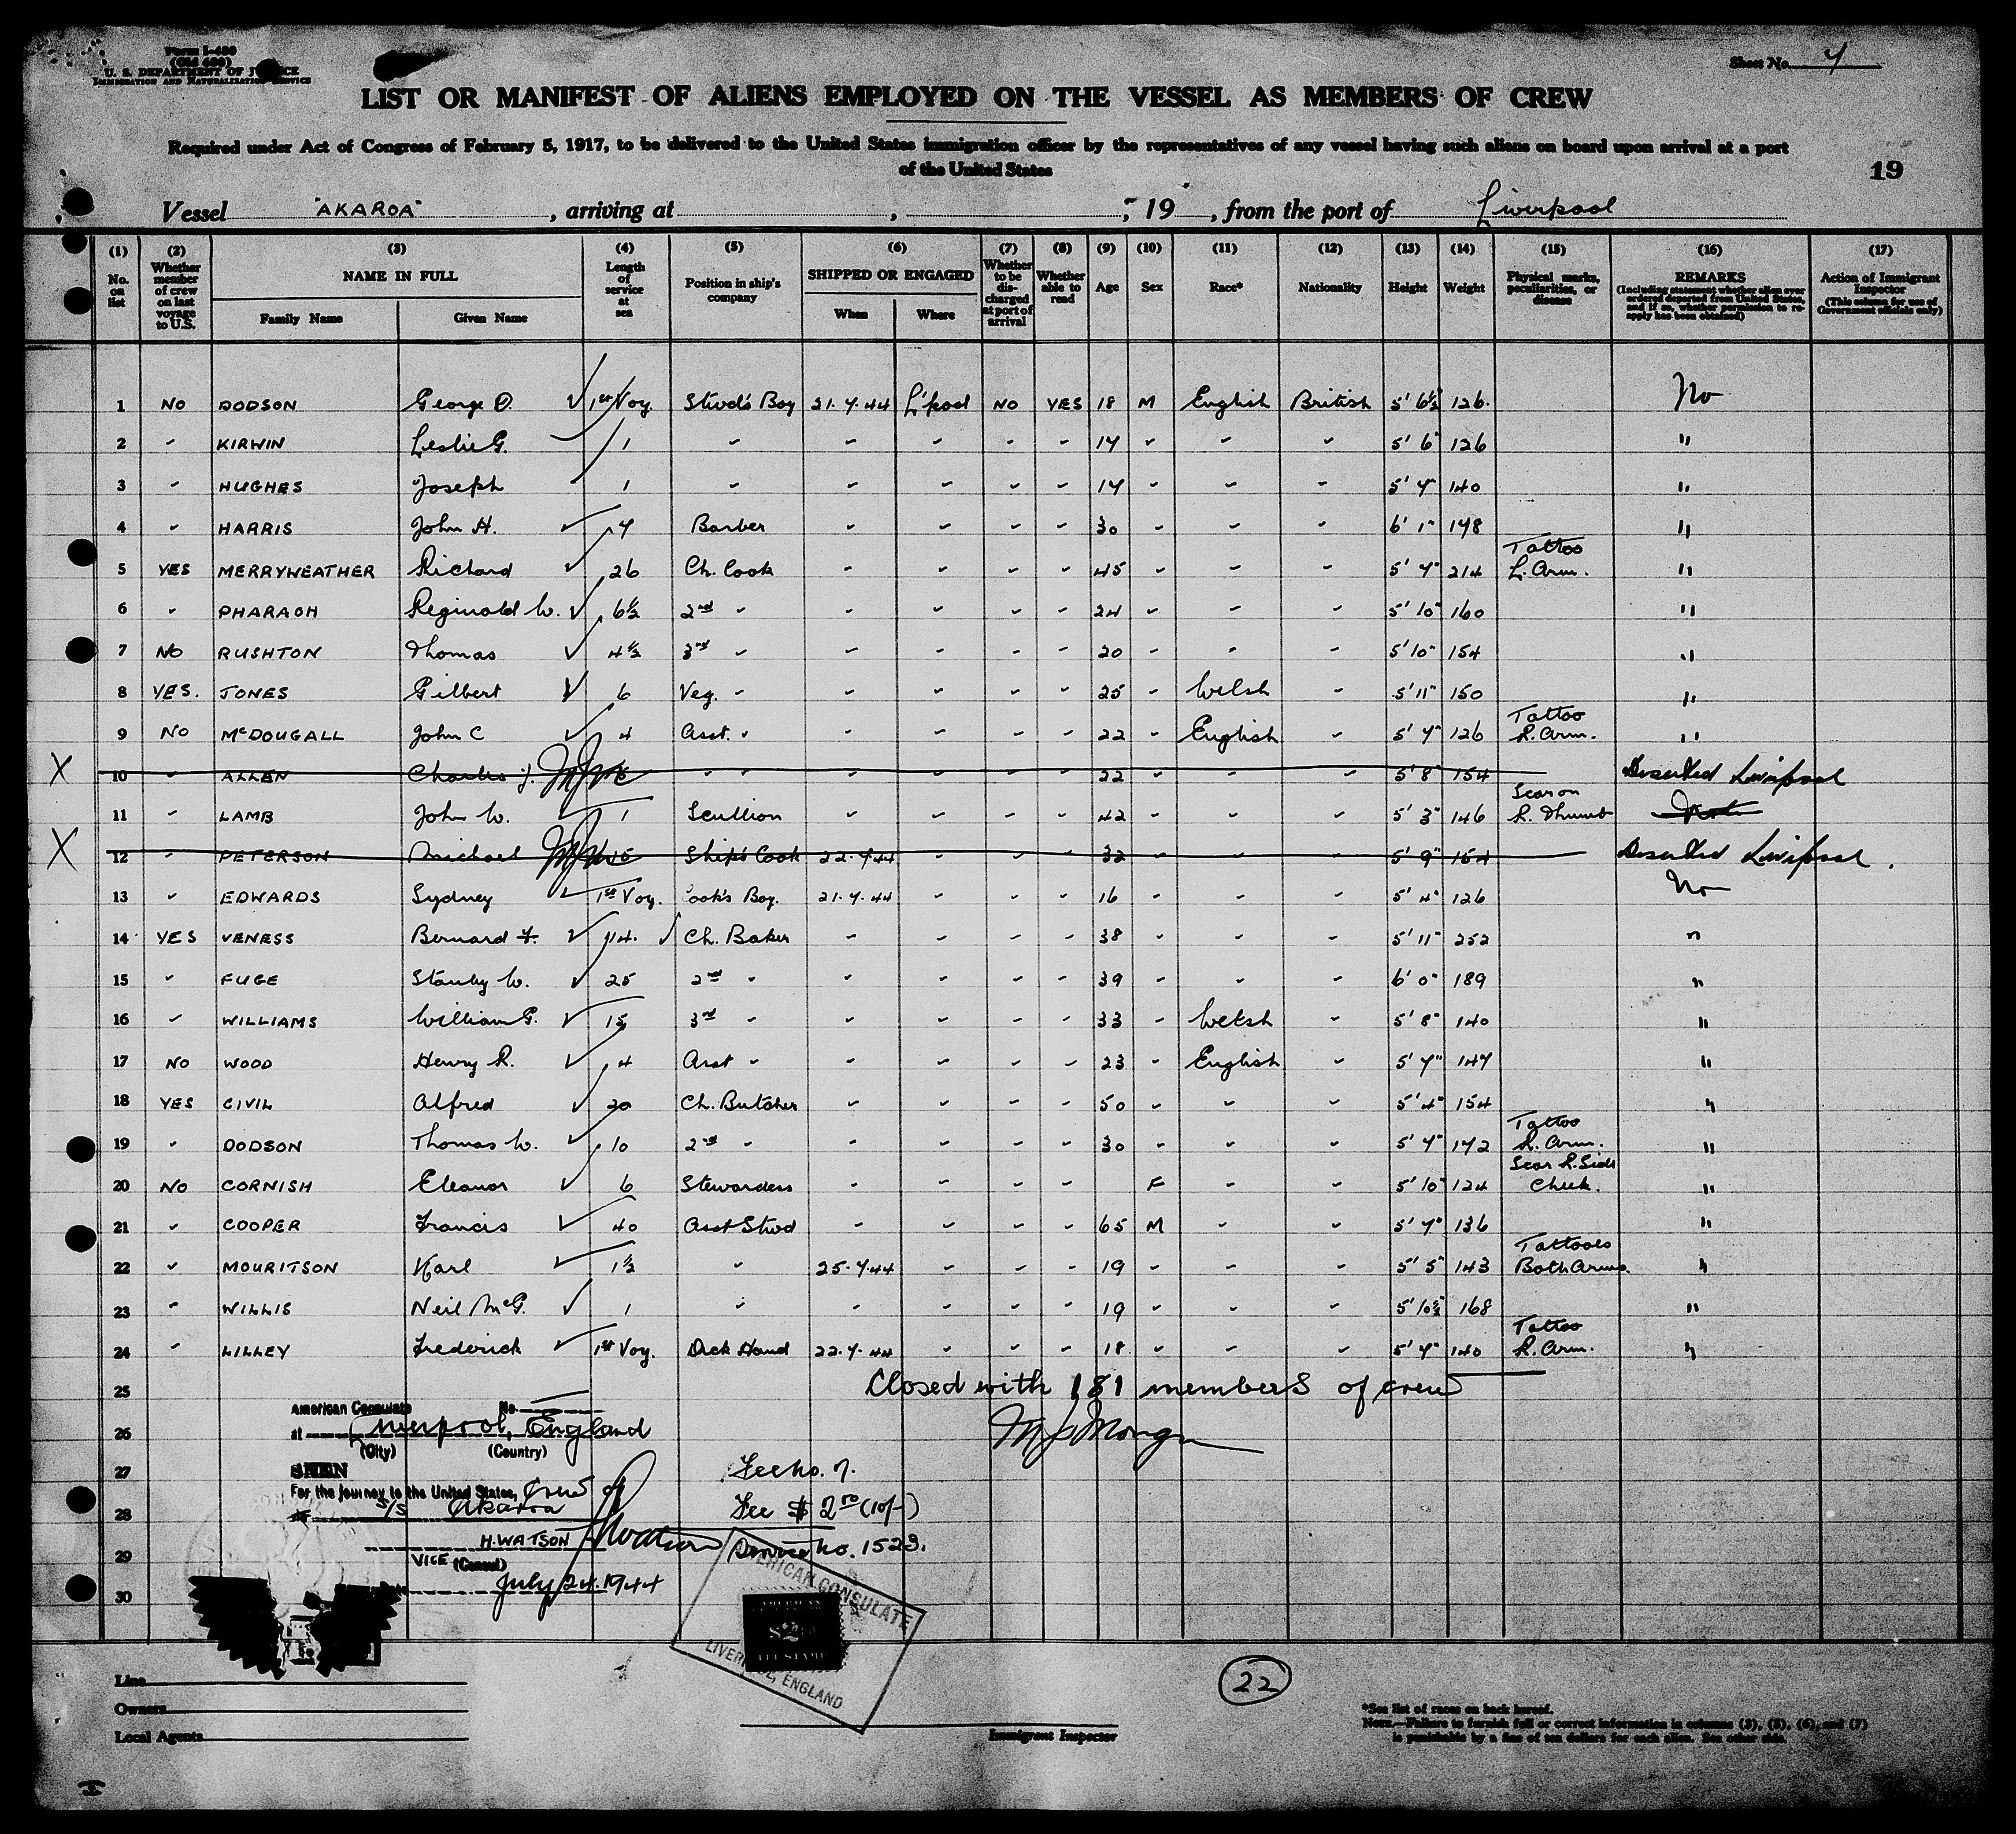 Form I-480
U. S. DEPARTMENT OF JUSTICE
IMMIGRATION AND NATURALIZATION SERVICE
Sheet No. 7
LIST OR MANIFEST OF ALIENS EMPLOYED ON THE VESSEL AS MEMBERS OF CREW
Required under Act of Congress of February 5, 1917, to be delivered to the United States immigration officer by the representatives of any vessel having such aliens on board upon arrival at a port
of the United States
19
Vessel "AKAROA", arriving at , , 19 , from the port of Liverpool
(1) (2) (3) (4) (5) (6) (7) (8) (9) (10) (11) (12) (13) (14) (15) (16) (17)
No. on list Whether member of crew on last voyage to U.S. NAME IN FULL Family Name Given Name Length of service at sea Position in ship's company SHIPPED OR ENGAGED When Where Whether to be discharged at port of arrival Whether able to read Age Sex Race* Nationality Height Weight Physical marks, peculiarities, or disease REMARKS (Including statement whether alien ever ordered deported from United States, and if so, whether permission to reapply has been obtained) Action of Immigrant Inspector (This column for use of Government officials only)
1 NO DODSON George O. 1st Voy. Stwd's Boy 21.7.44 L'pool NO YES 18 M English British 5' 6½ 126. No
2 " KIRWIN Leslie G. 1 " " " " " 17 " " " 5' 6" 126 "
3 " HUGHES Joseph 1 " " " " " 17 " " " 5' 7" 140 "
4 " HARRIS John H. 7 Barber " " " " 30 " " " 6' 1" 178 "
5 YES MERRYWEATHER Richard 26 Ch. Cook " " " " 45 " " " 5' 7" 214 Tattoo L. Arm. "
6 " PHARAOH Reginald W. 6½ 2nd " " " " " 24 " " " 5' 10" 160 "
7 NO RUSHTON Thomas 4½ 3rd " " " " " 20 " " " 5' 10" 154 "
8 YES. JONES Gilbert 6 Veg. " " " " " 25 " Welsh " 5' 11" 150 "
9 NO McDOUGALL John C 4 Asst. " " " " " 22 " English " 5' 7" 126 Tattoo R. Arm. "
X 10 " ALLEN Charles J. " " " " " " 22 " " " 5' 8" 154 Deserted Liverpool
11 " LAMB John W. 1 Scullion " " " " 42 " " " 5' 3" 146 Scar on R. Thumb
X 12 " PETERSON Michael Ship's Cook 22.7.44 " " " 32 " " " 5' 9" 154 Deserted Liverpool.
13 " EDWARDS Sydney 1st Voy. Cook's Boy. 21.7.44 " " " 16 " " " 5' 4" 126 No
14 YES VENESS Bernard F. 14. Ch. Baker " " " " 38 " " " 5' 11" 252 "
15 " FUGE Stanley W. 25 2nd " " " " " 39 " " " 6' 0" 189 "
16 " WILLIAMS William G. 15 3rd " " " " " 33 " Welsh " 5' 8" 140 "
17 NO WOOD Henry R. 4 Asst " " " " " 23 " English " 5' 7" 147 "
18 YES CIVIL Alfred 20 Ch. Butcher " " " " 50 " " " 5' 4" 154 "
19 " DODSON Thomas W. 10 2nd " " " " " 30 " " " 5' 7" 172 Tattoo R. Arm. "
20 NO CORNISH Eleanor 6 Stewardess " " " " F " " 5' 10" 124 Scar R. Side Cheek. "
21 " COOPER Francis 40 Asst Stwd " " " " 65 M " " 5' 7" 136 "
22 " MOURITSON Karl 1½ " 25.7.44 " " " 19 " " " 5' 5" 143 Tattooes Both Arms. "
23 " WILLIS Neil McG. 1 " " " " " 19 " " " 5' 10½ 168 "
24 " LILLEY Frederick 1st Voy. Deck Hand 22.7.44 " " " 18 " " " 5' 7" 140 Tattoo R. Arm. "
25 Closed with 181 members of crew
American Consulate No.
26 at Liverpool, England
(City) (Country)
27 SEEN Fee No. 7.
For the journey to the United States, Crew of
28 S/S Akaroa Fee $ 2.50 (10/-)
H. WATSON Service No. 1523.
29 VICE (Consul)
July 24. 1944
30
AMERICAN CONSULATE
LIVERPOOL, ENGLAND
AMERICAN
$2
FEE STAMP
Line
Owners
Local Agents
22
Immigrant Inspector
*See list of races on back hereof.
NOTE.—Failure to furnish full or correct information in columns (3), (5), (6), and (7)
is punishable by a fine of ten dollars for each alien. See other side.